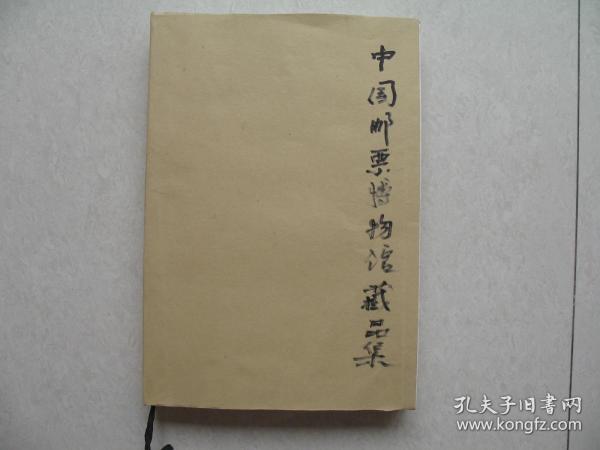 中国邮票博物馆藏品集
孔夫子旧书网
www.kongfz.com